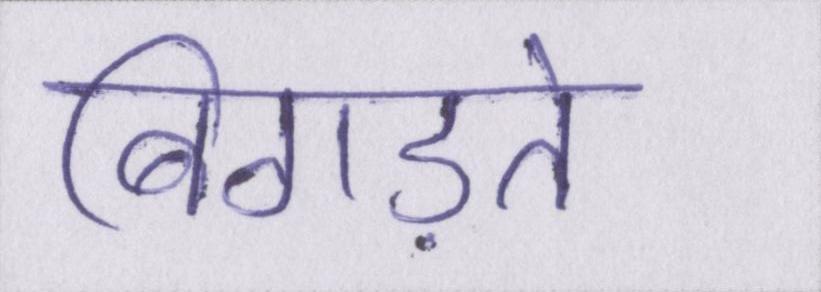 बिगड़ते